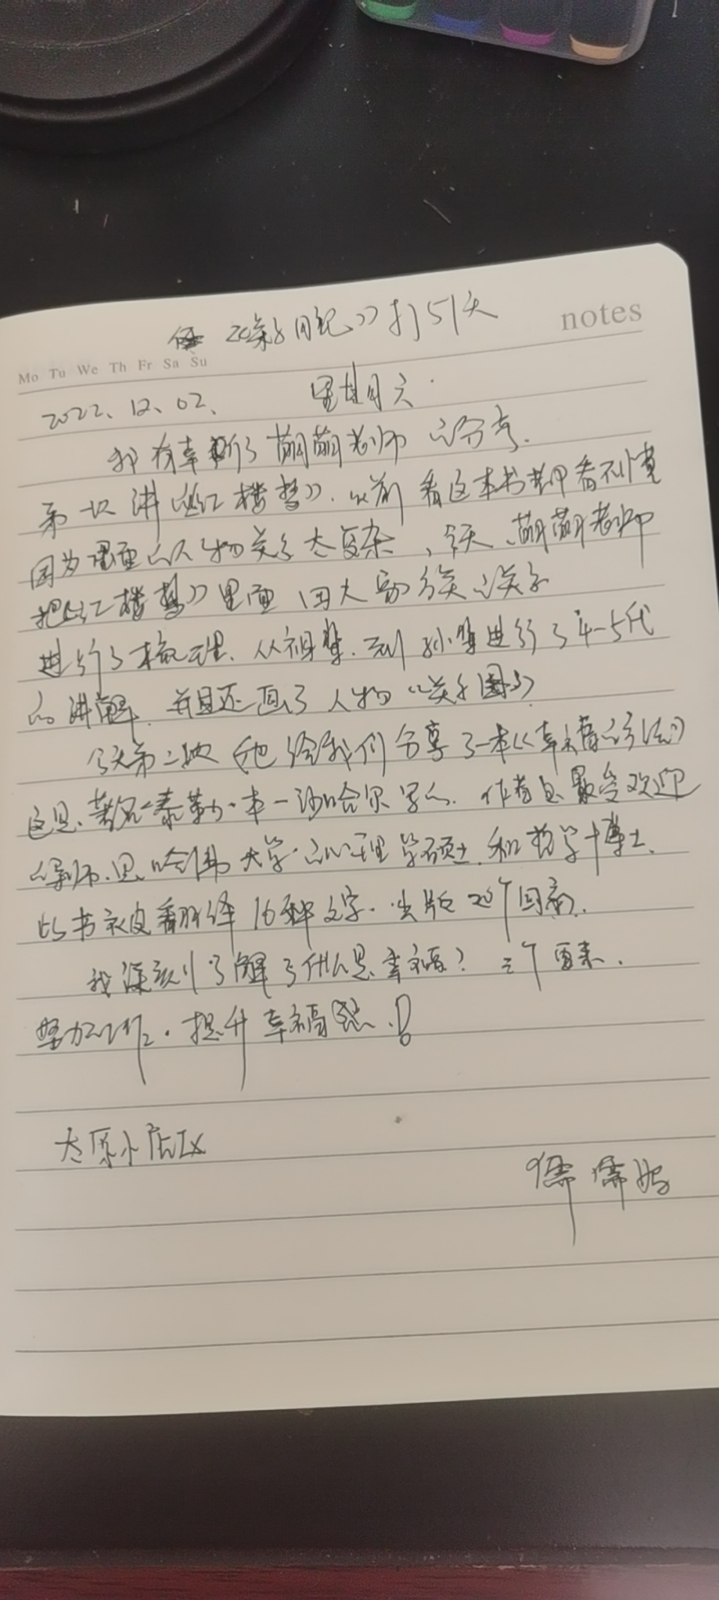 《亲子日记》第51天
notes
Mo Tu We Th Fr Sa Su
2022.12.02. 星期六.
我有幸听了萌萌老师的分享.
第一次讲《红楼梦》.以前看这本书老是看不懂
因为里面的人物关系太复杂,今天,萌萌老师
把《红楼梦》里面四大家族的关系
进行了梳理.从祖辈.到孙辈进行了4-5代
的讲解.并且还画了人物"关系图".
今天第二块他给我们分享了一本《幸福的方法》
这是.著名泰勒·本-沙哈尔写的.作者是最受欢迎
的导师.是哈佛大学.心理学硕士.和哲学博士.
此书被翻译16种文字.出版20个国家.
我深刻了解了什么是幸福?三个要素.
努力工作.提升幸福感.!
太原小店区
儒儒妈